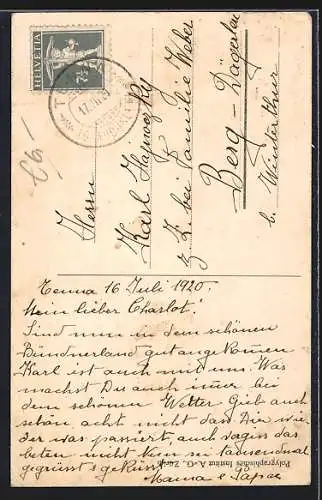 HELVETIA
7½
Herrn
Karl Hajnoczky
z. Z. bei Familie Weber
Berg-Dägerlen
b. Winterthur
Tenna 16 Juli 1920.
Mein lieber Charlot!
Sind nun in dem schönen
Bündnerland gut angekommen
Karl ist auch mit uns. Was
machst Du auch immer bei
dem schönen Wetter Gieb auch
schön acht nicht dass Dir wie-
der was passiert, auch
beten nicht sei tausendmal
gegrüsst & geküsst
Mama & Papa
Polygraphisches Institut A.-G. Zürich